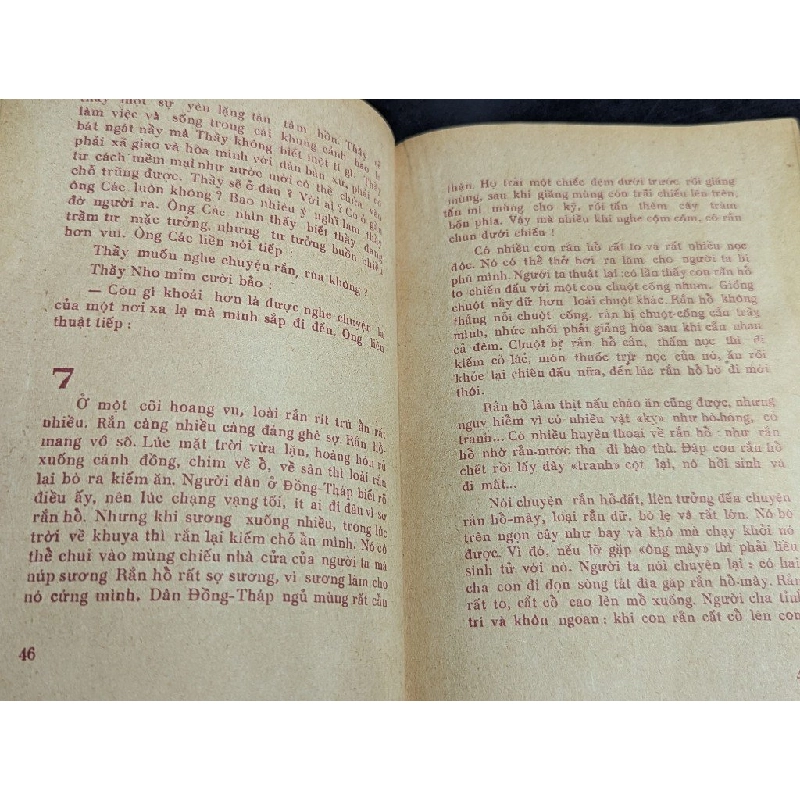 thấy một sự yên lặng tân tâm hồn. Thầy sẽ
làm việc và sống trong cái khung cảnh bao la
bát ngát nầy mà Thầy không biết một tí gì. Thầy
phải xã giao và hòa mình với dân bản xứ, phải có
tư cách mềm mại như nước mới có thể chứa vào
chỗ trũng được. Thầy sẽ ở đâu? Với ai? Có ở gần
ông Các luôn không? Bao nhiêu ý nghĩ làm thầy
đờ người ra. Ông Các nhìn thầy biết thầy đang
trầm tư mặc tưởng, nhưng tư tưởng buồn nhiều
hơn vui. Ông Các liền nói tiếp:
Thầy muốn nghe chuyện rắn, rùa không?
Thầy Nho mỉm cười bảo:
— Còn gì khoái hơn là được nghe chuyện lạ
của một nơi xa lạ mà mình sắp đi đến. Ông liền
thuật tiếp:
7
Ở một cõi hoang vu, loài rắn rít trú ẩn rất
nhiều. Rắn càng nhiều càng đáng ghê sợ. Rắn hổ-
mang vô số. Lúc mặt trời vừa lặn, hoàng hôn rủ
xuống cánh đồng, chim về ổ, về sân thì loài rắn
lại bò ra kiếm ăn. Người dân ở Đồng-Tháp biết rõ
điều ấy, nên lúc chạng vạng tối, ít ai đi đâu vì sợ
rắn hổ. Nhưng khi sương xuống nhiều, trong lúc
trời về khuya thì rắn lại kiếm chỗ ẩn mình. Nó có
thể chui vào mùng chiếu nhà cửa của người ta mà
núp sương Rắn hổ rất sợ sương, vì sương làm cho
nó cứng mình. Dân Đồng-Tháp ngủ mùng rất cẩn
46
thận. Họ trải một chiếc đệm dưới trước rồi giăng
mùng, sau khi giăng mùng còn trải chiếu lên trên,
tấn mí mùng cho kỹ, rồi tấn thêm cây tràm
bốn phía. Vậy mà nhiều khi nghe cộm cộm, có rắn
chun dưới chiếu!
Có nhiều con rắn hổ rất to và rất nhiều nọc
độc. Nó có thể thở hơi ra làm cho người ta bị
phù mình. Người ta thuật lại: có lần thấy con rắn hổ
to chiến đấu với một con chuột cống nhum. Giống
chuột này dữ hơn loài chuột khác. Rắn hổ không
thắng nổi chuột cống, rắn bị chuột-cống cắn trầy
mình, nhức nhối phải giăng hóa sau khi cắn nhau
cả đêm. Chuột bị rắn hổ cắn, thấm nọc thì đi
kiếm cỏ lức, món thuốc trừ nọc của nó, ăn rồi
khỏe lại chiến đấu nữa, đến lúc rắn hổ bò đi mới
thôi.
Rắn hổ làm thịt nấu cháo ăn cũng được, nhưng
nguy hiểm vì có nhiều vật «kỵ» như bồ-hóng, cỏ
tranh... Có nhiều huyền thoại về rắn hổ: như rắn
hổ nhờ rắn-nước tha đi báo thù. Đập con rắn hổ
chết rồi lấy dây «tranh» cột lại, nó hồi sinh và
đi mất...
Nói chuyện rắn hổ-đất, liên tưởng đến chuyện
rắn hổ-mây, loại rắn dữ, bõ lẹ và rất lớn. Nó bò
trên ngọn cây như bay và khó mà chạy khỏi nó
được. Vì đó, nếu lỡ gặp «ông mây» thì phải liều
sinh tử với nó. Người ta nói chuyện lại: có hai
cha con đi đọn sòng tát dìa gặp rắn hổ-mây. Rắn
rất to, cất cổ cao lên mổ xuống. Người cha tinh
trí và khôn ngoan: khi con rắn cất cổ lên con